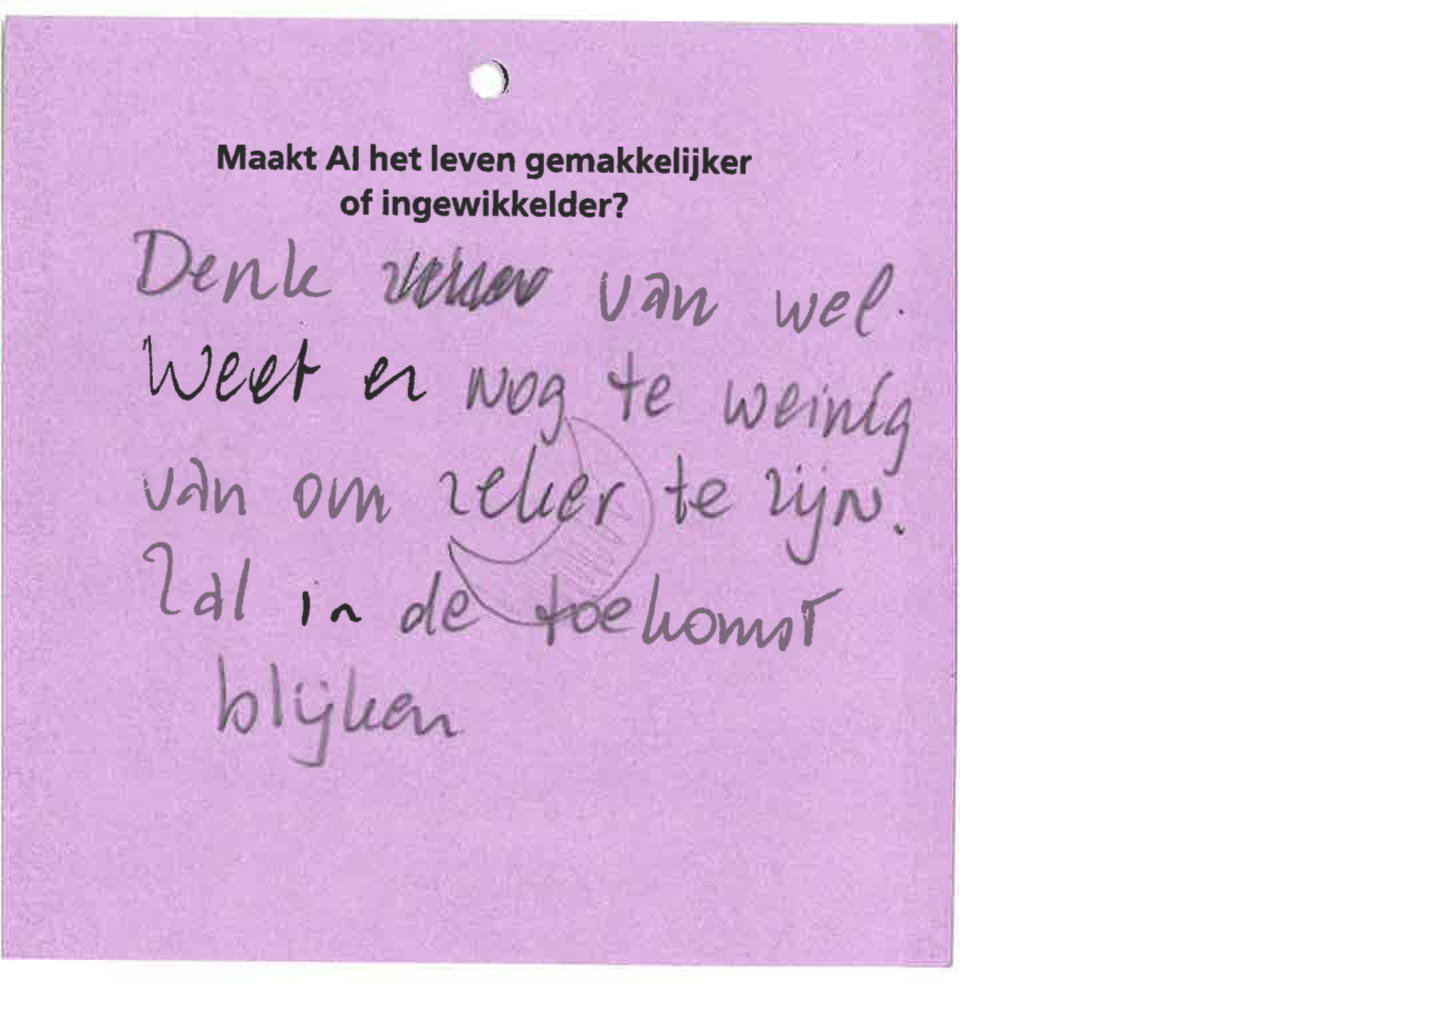 Maakt AI het leven gemakkelijker
of ingewikkelder?
Denk van wel.
Weet er nog te weinig
van om zeker te zijn.
Zal in de toekomst
blijken